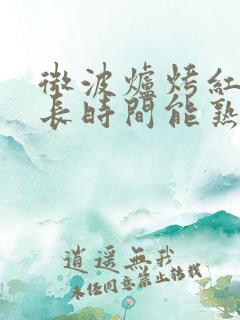 微波爐烤紅
長時間能熟
逍遥無我
未经同意禁止转载